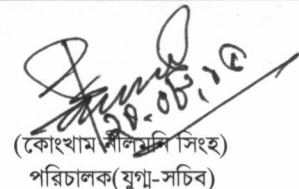 ২০.০৮.১৫
(কোংখাম নীলমনি সিংহ)
পরিচালক(যুগ্ম-সচিব)